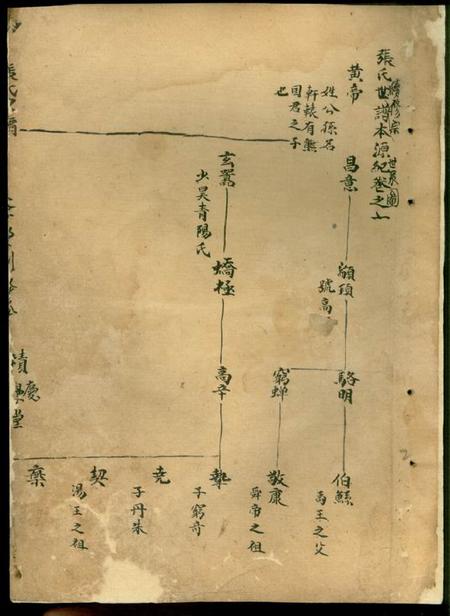 張氏世譜本源紀卷之上
世系圖
黃帝
姓公孫名
軒轅有熊
國君之子
也
昌意
顓頊
號高
駱明
伯鯀
禹王之父
窮蟬
敬康
舜帝之祖
玄囂
少昊青陽氏
蟜極
高辛
摯
子窮奇
堯
子丹朱
契
湯王之祖
棄
張氏
慶
堂